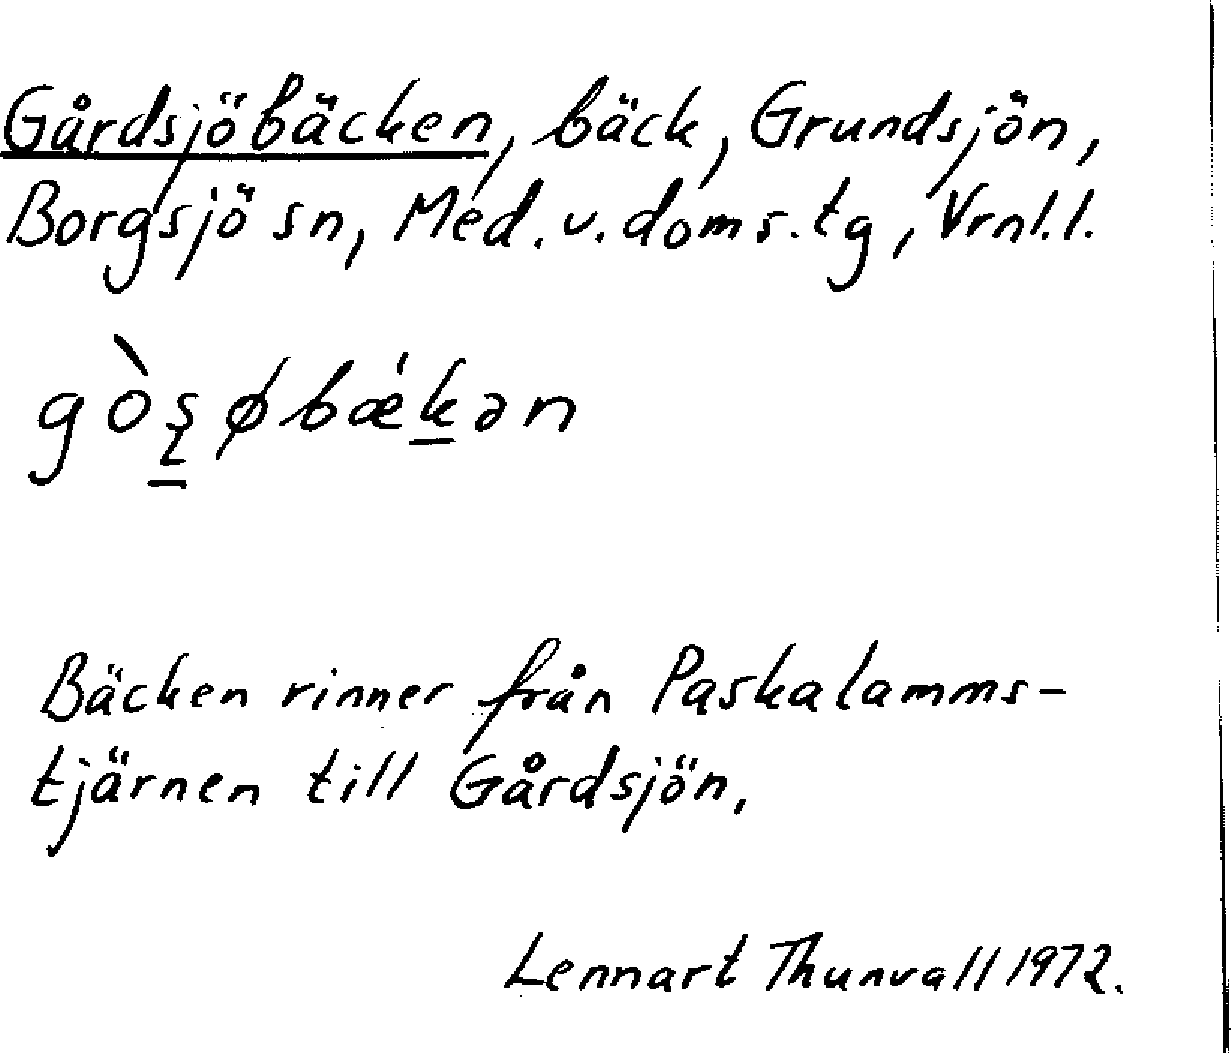 Gårdsjöbäcken, bäck, Grundsjön,
Borgsjö sn, Med. v. doms.tg, Vrnl.l.
gòʂøbǽkən
Bäcken rinner från Paskalamms-
tjärnen till Gårdsjön.
Lennart Thunvall 1972.